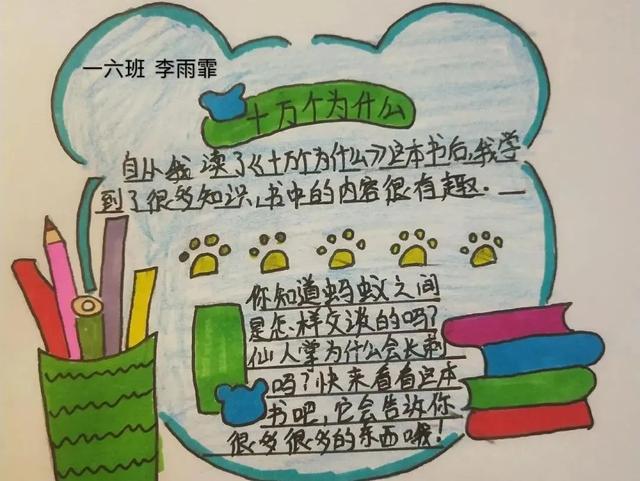 一六班 李雨霏
十万个为什么
自从我读了《十万个为什么》这本书后，我学
到了很多知识，书中的内容很有趣.
你知道蚂蚁之间
是怎样交谈的吗？
仙人掌为什么会长刺
吗？快来看看这本
书吧，它会告诉你
很多很多的东西哦！